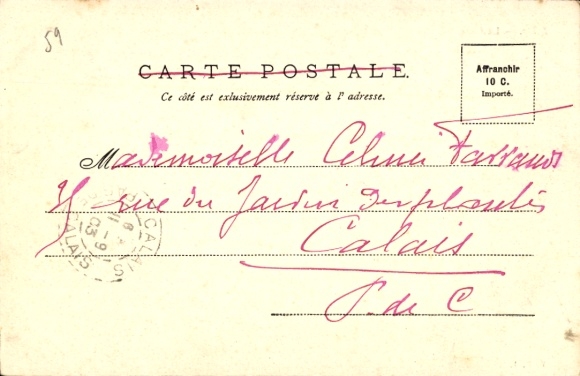 59
CARTE POSTALE.
Ce côté est exlusivement réservé à l' adresse.
Affranchir
10 C.
Importé.
Mademoiselle
rue du Jardin des plantes
Calais
P. de C
CALAIS
CALAIS